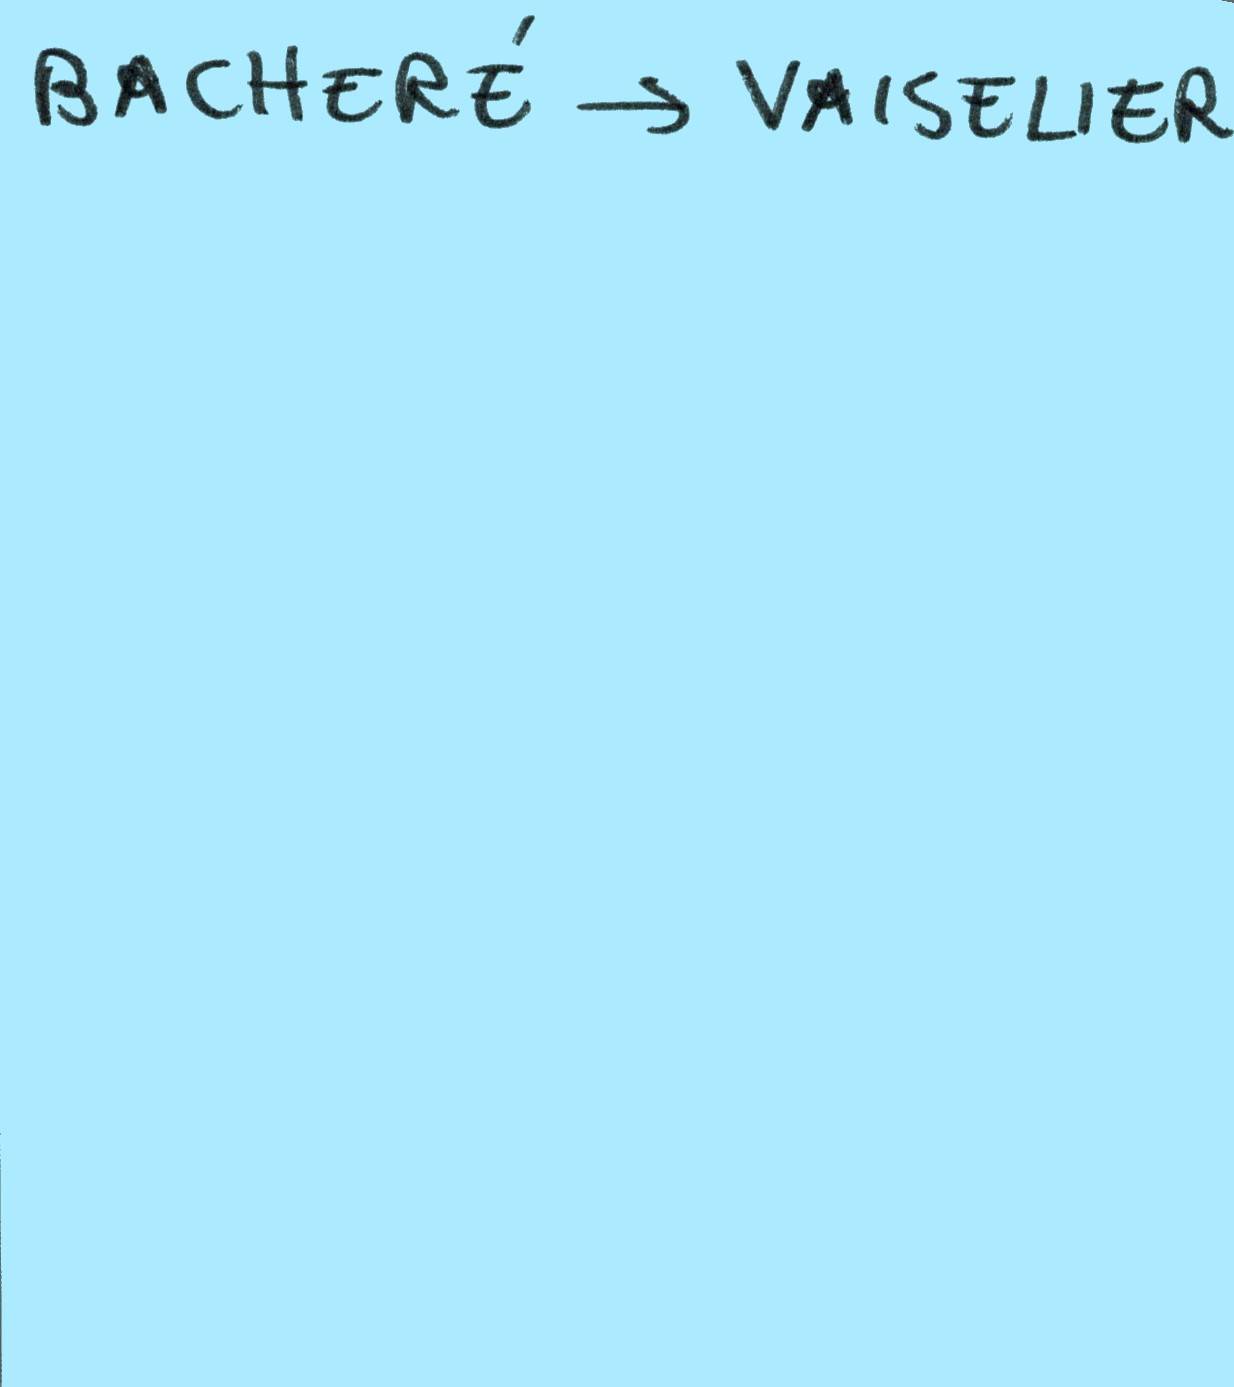 BACHERÉ → VAISELIER